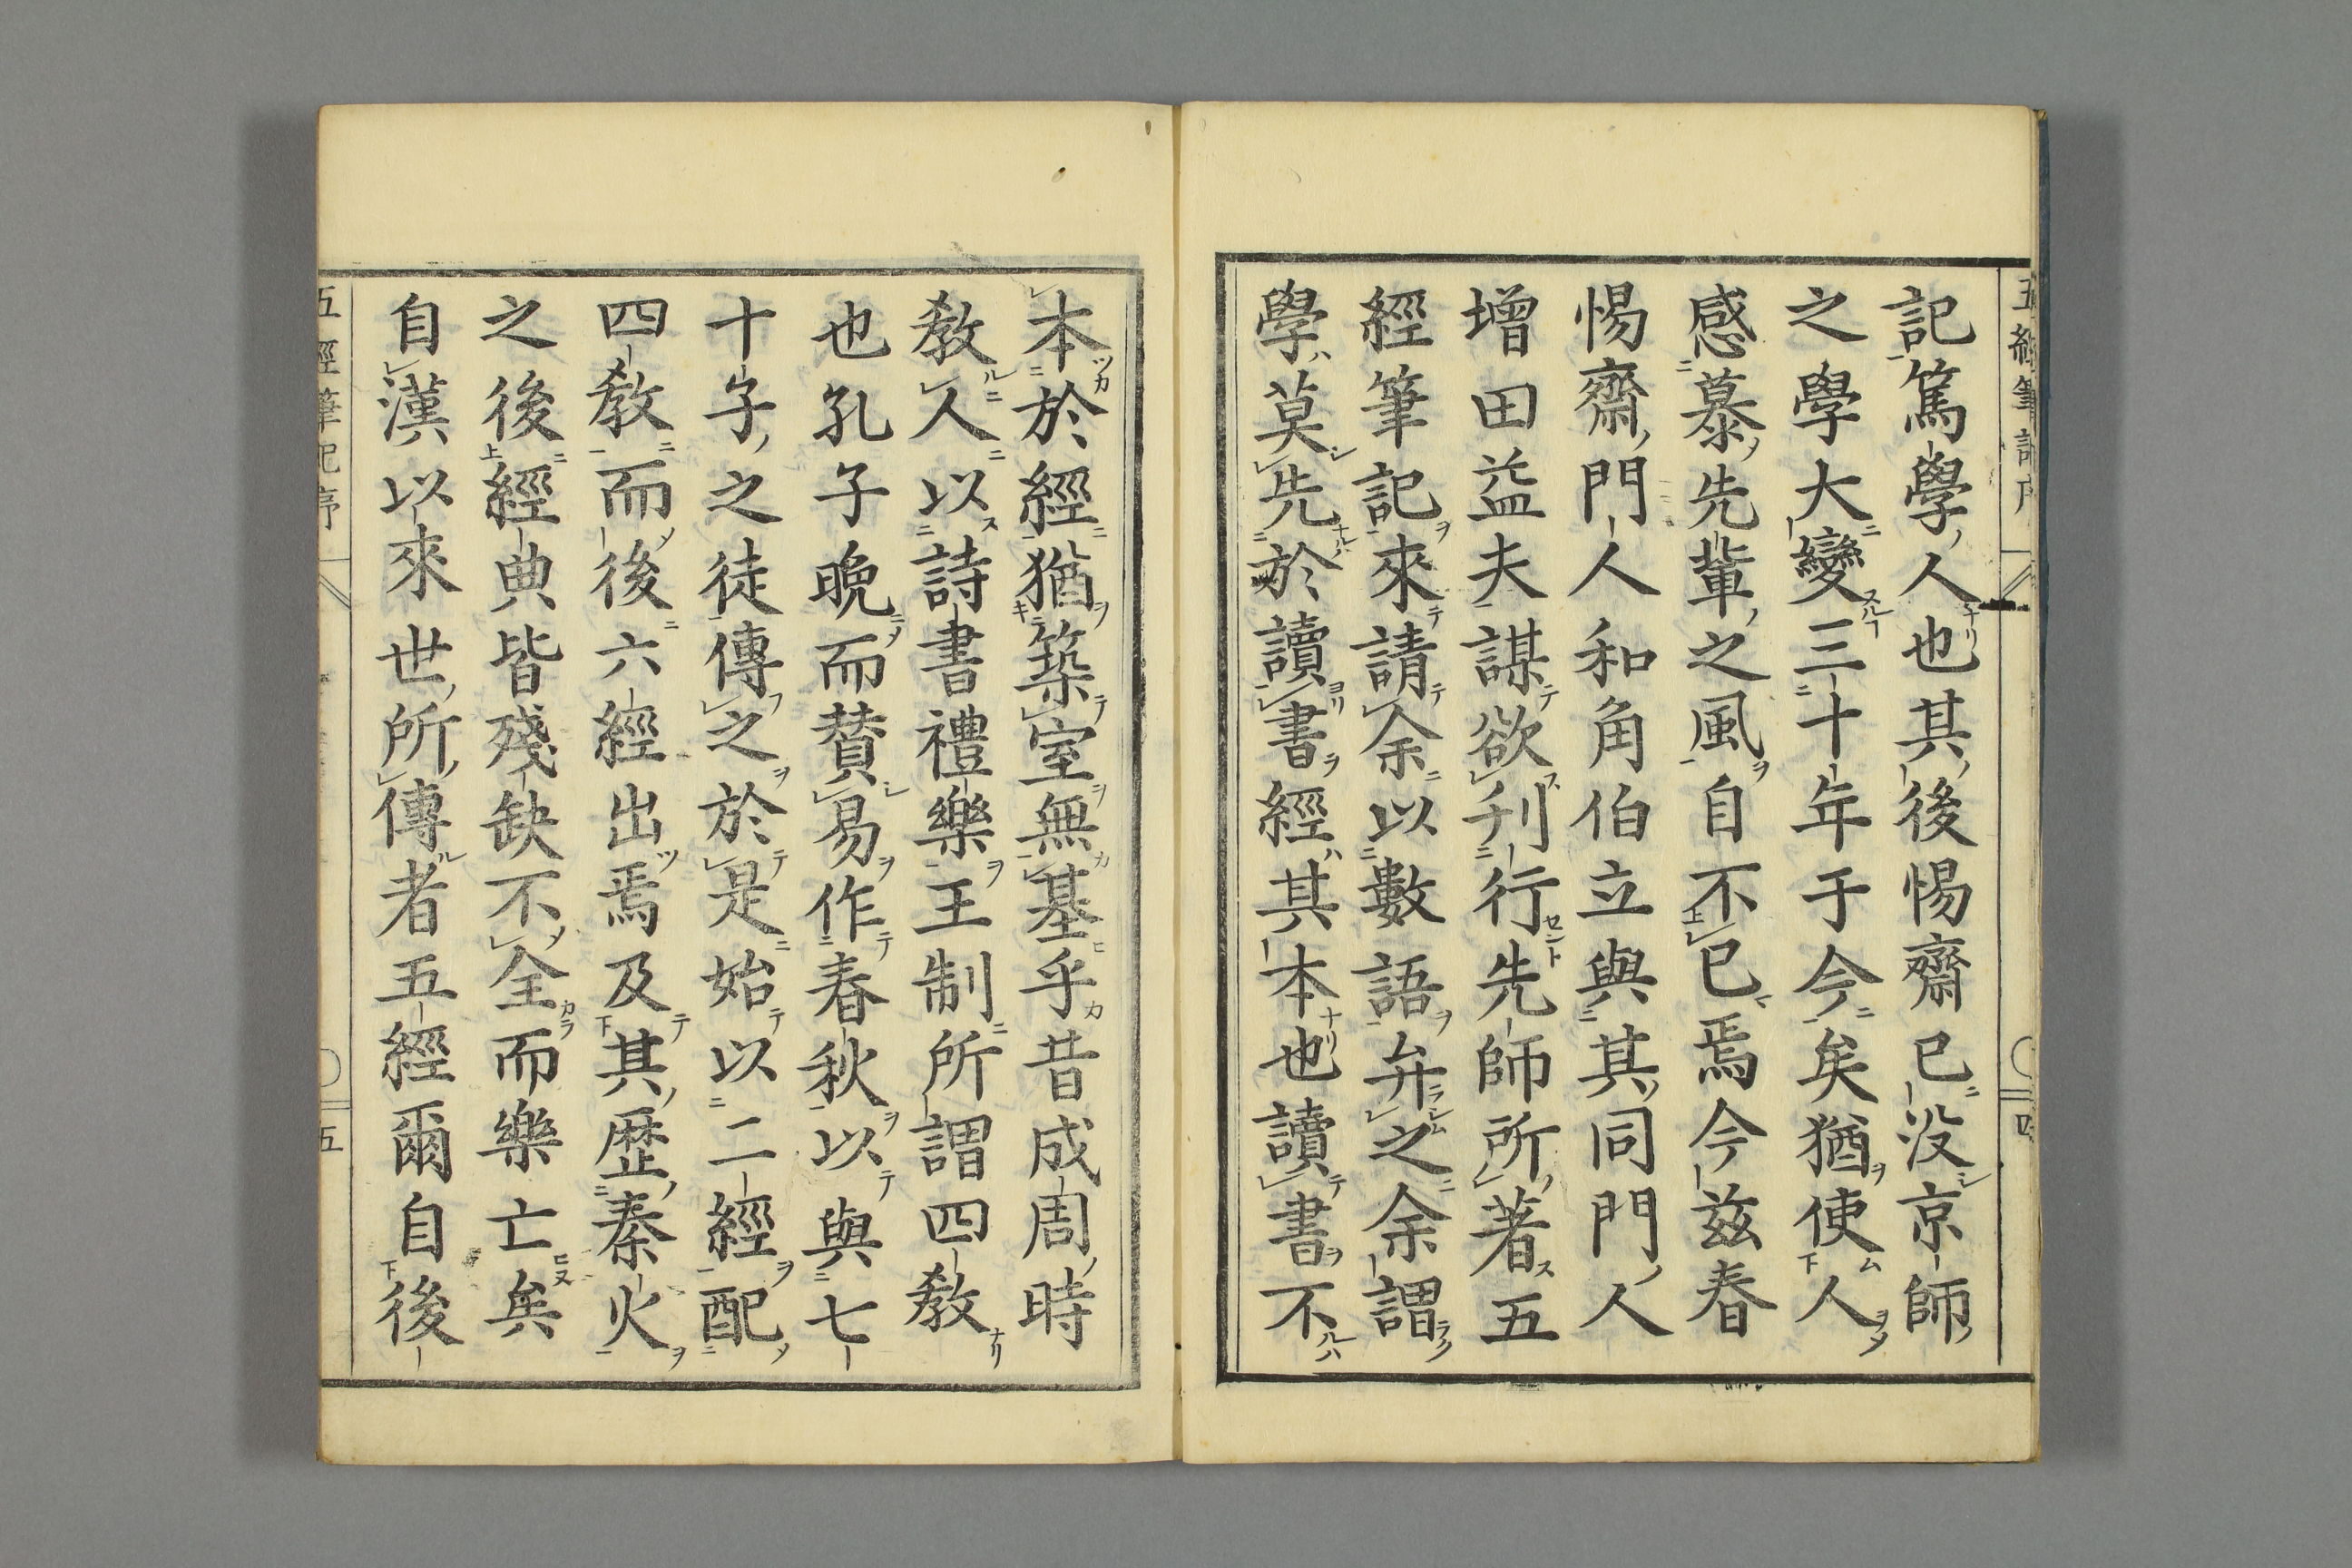 記篤學人也其後惕齋已没京師
之學大變三十年于今矣猶使人
感慕先輩之風自不已焉今茲春
惕齋門人和角伯立與其同門人
增田益夫謀欲刊行先師所著五
經筆記來請余以數語弁之余謂
學莫先於讀書經其本也讀書不
本於經猶築室無基乎昔成周時
敎人以詩書禮樂王制所謂四敎
也孔子晚而賛易作春秋以與七
十子之徒傳之於是始以二經配
四敎而後六經出焉及其歴秦火
之後經典皆殘缺不全而樂亡矣
自漢以來世所傳者五經爾自後
五經筆記序
五